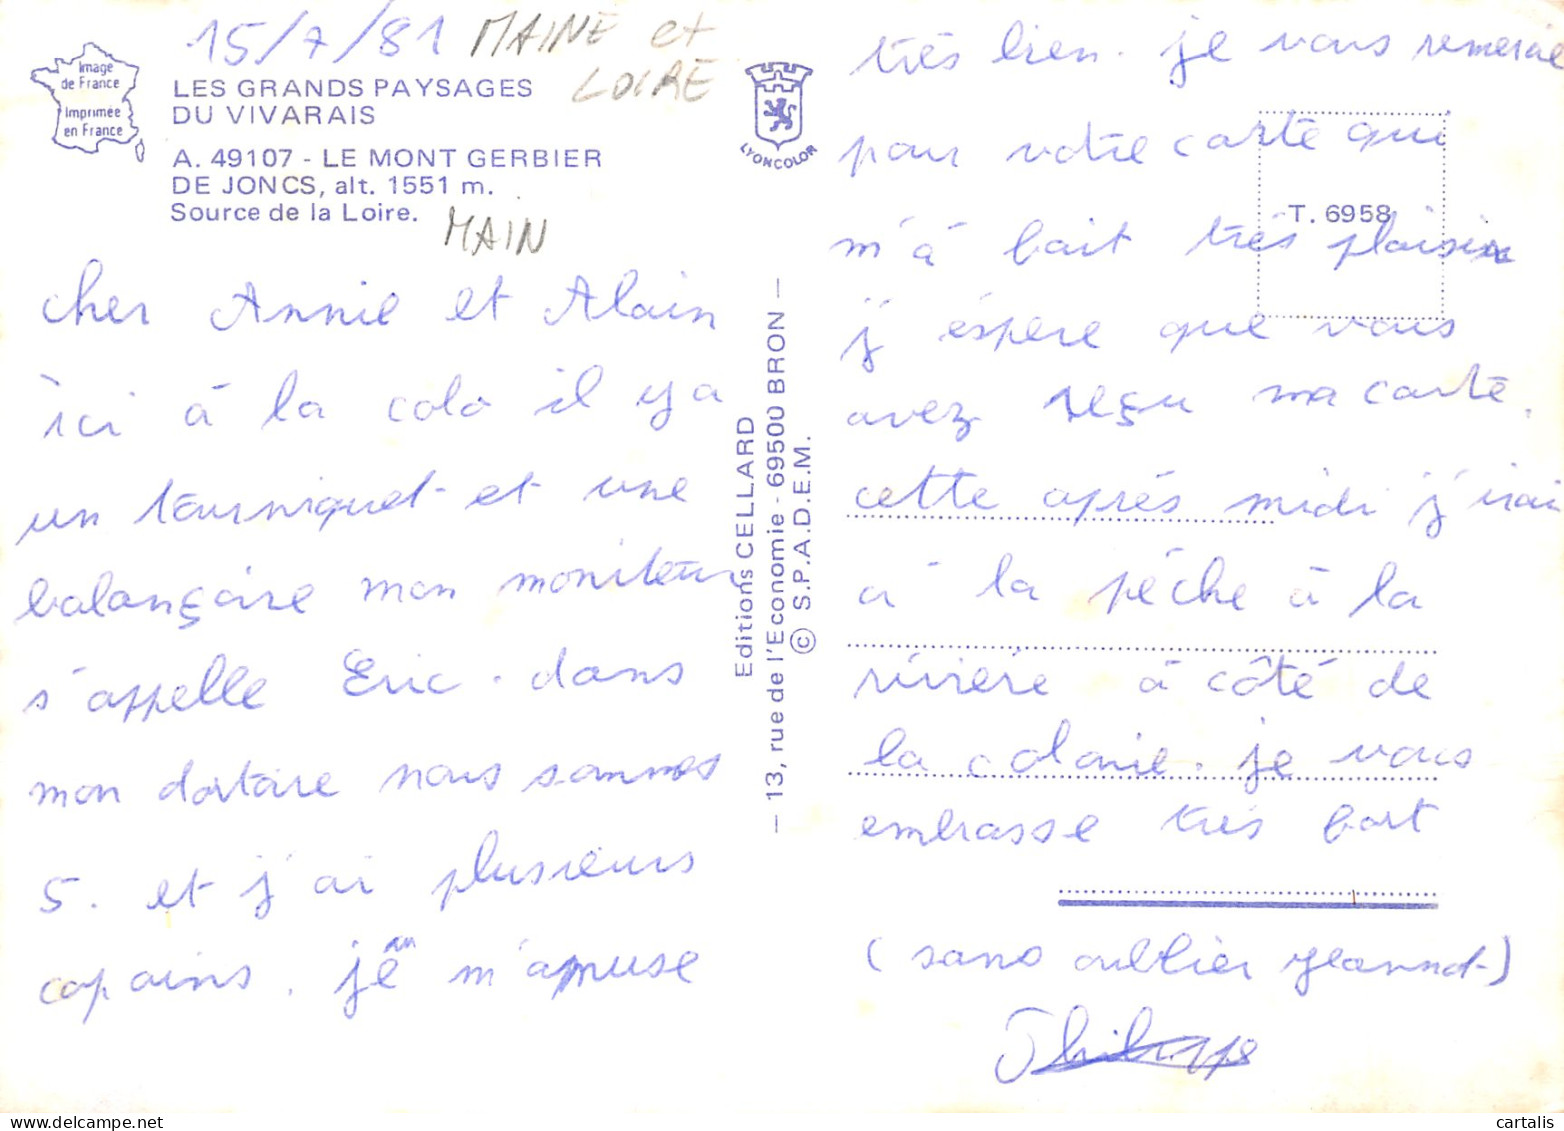 15/7/81 MAINE et
LOIRE
Image
de France
Imprimée
en France
LES GRANDS PAYSAGES
DU VIVARAIS
A. 49107 - LE MONT GERBIER
DE JONCS, alt. 1551 m.
Source de la Loire.
MAIN
cher Annie et Alain
ici à la colo il y a
un tourniquet et une
balançoire mon moniteur
s'appelle Eric. dans
mon dortoire nous sommes
5. et j'ai plusieurs
copains. je m'amuse
LYONCOLOR
Editions CELLARD
— 13, rue de l'Economie - 69500 BRON —
© S.P.A.D.E.M.
T. 6958
très bien. je vous remercie
pour votre carte qui
m'à fait très plaisir
j'éspère que vous
avez reçu ma carte.
cette après midi j'irai
à la pêche à la
rivière à côté de
la colonie. je vous
embrasse très fort
(sans oublier Jeannot)
Philippe
cartalis.com